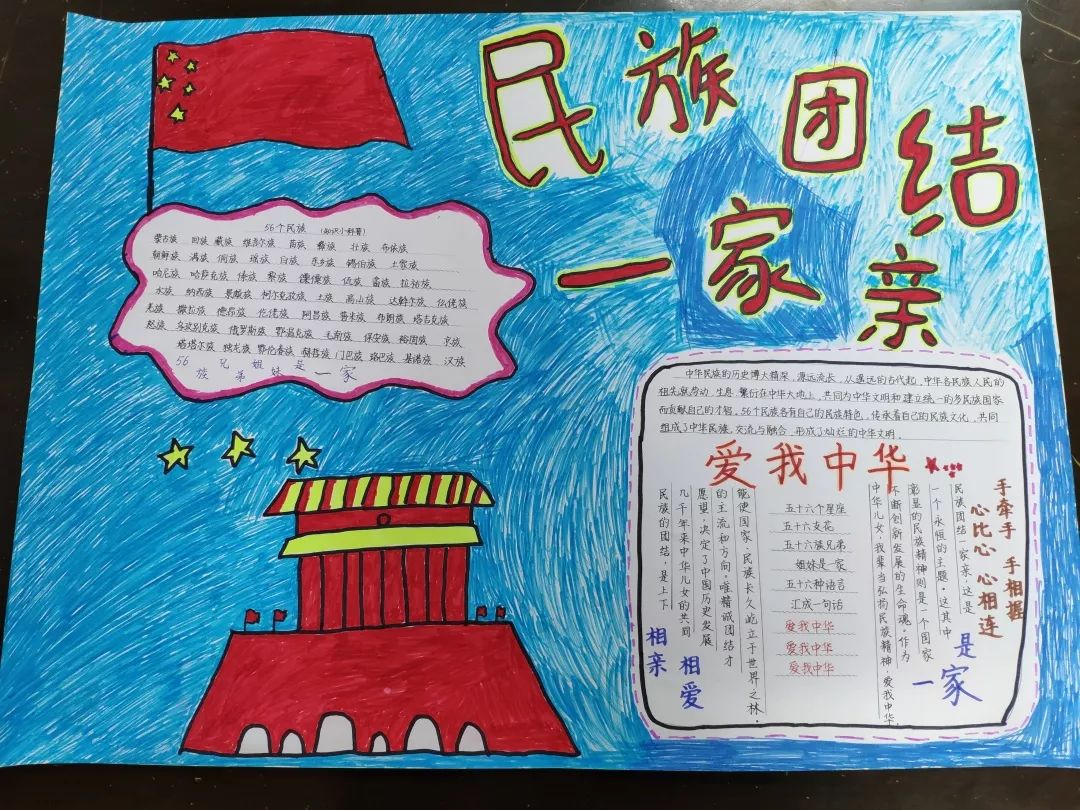 民族团结
一家亲
56个民族 (知识小科普)
蒙古族 回族 藏族 维吾尔族 苗族 彝族 壮族 布依族
朝鲜族 满族 侗族 瑶族 白族 东乡族 锡伯族 土家族
哈尼族 哈萨克族 傣族 黎族 傈僳族 佤族 畲族 拉祜族
水族 纳西族 景颇族 柯尔克孜族 土族 高山族 达斡尔族 仫佬族
羌族 撒拉族 德昂族 仡佬族 阿昌族 普米族 布朗族 塔吉克族
怒族 乌孜别克族 俄罗斯族 鄂温克族 毛南族 保安族 裕固族 京族
塔塔尔族 独龙族 鄂伦春族 赫哲族 门巴族 珞巴族 基诺族 汉族
56 兄 姐 是
族 弟 妹 一家
中华民族的历史博大精深，源远流长，从遥远的古代起，中华各民族人民的
祖先就劳动、生息、繁衍在中华大地上，共同为中华文明和建立统一的多民族国家
而贡献自己的才智。56个民族各有自己的民族特色，传承着自己的民族文化，共同
组成了中华民族，交流与融合，形成了灿烂的中华文明。
爱我中华
手牵手 手相握
心比心 心相连
是
一家
民族团结一家亲，这是
一个永恒的主题。这其中
彰显的民族精神则是一个国家
不断创新发展的生命魂。作为
中华儿女，我辈当弘扬民族精神，爱我中华。
五十六个星座
五十六支花
五十六族兄弟
姐妹是一家
五十六种语言
汇成一句话
爱我中华
爱我中华
爱我中华
能使国家、民族长久屹立于世界之林。
的主流和方向。唯精诚团结才
愿望，决定了中国历史发展
几千年来中华儿女的共同
民族的团结，是上下
相亲
相爱